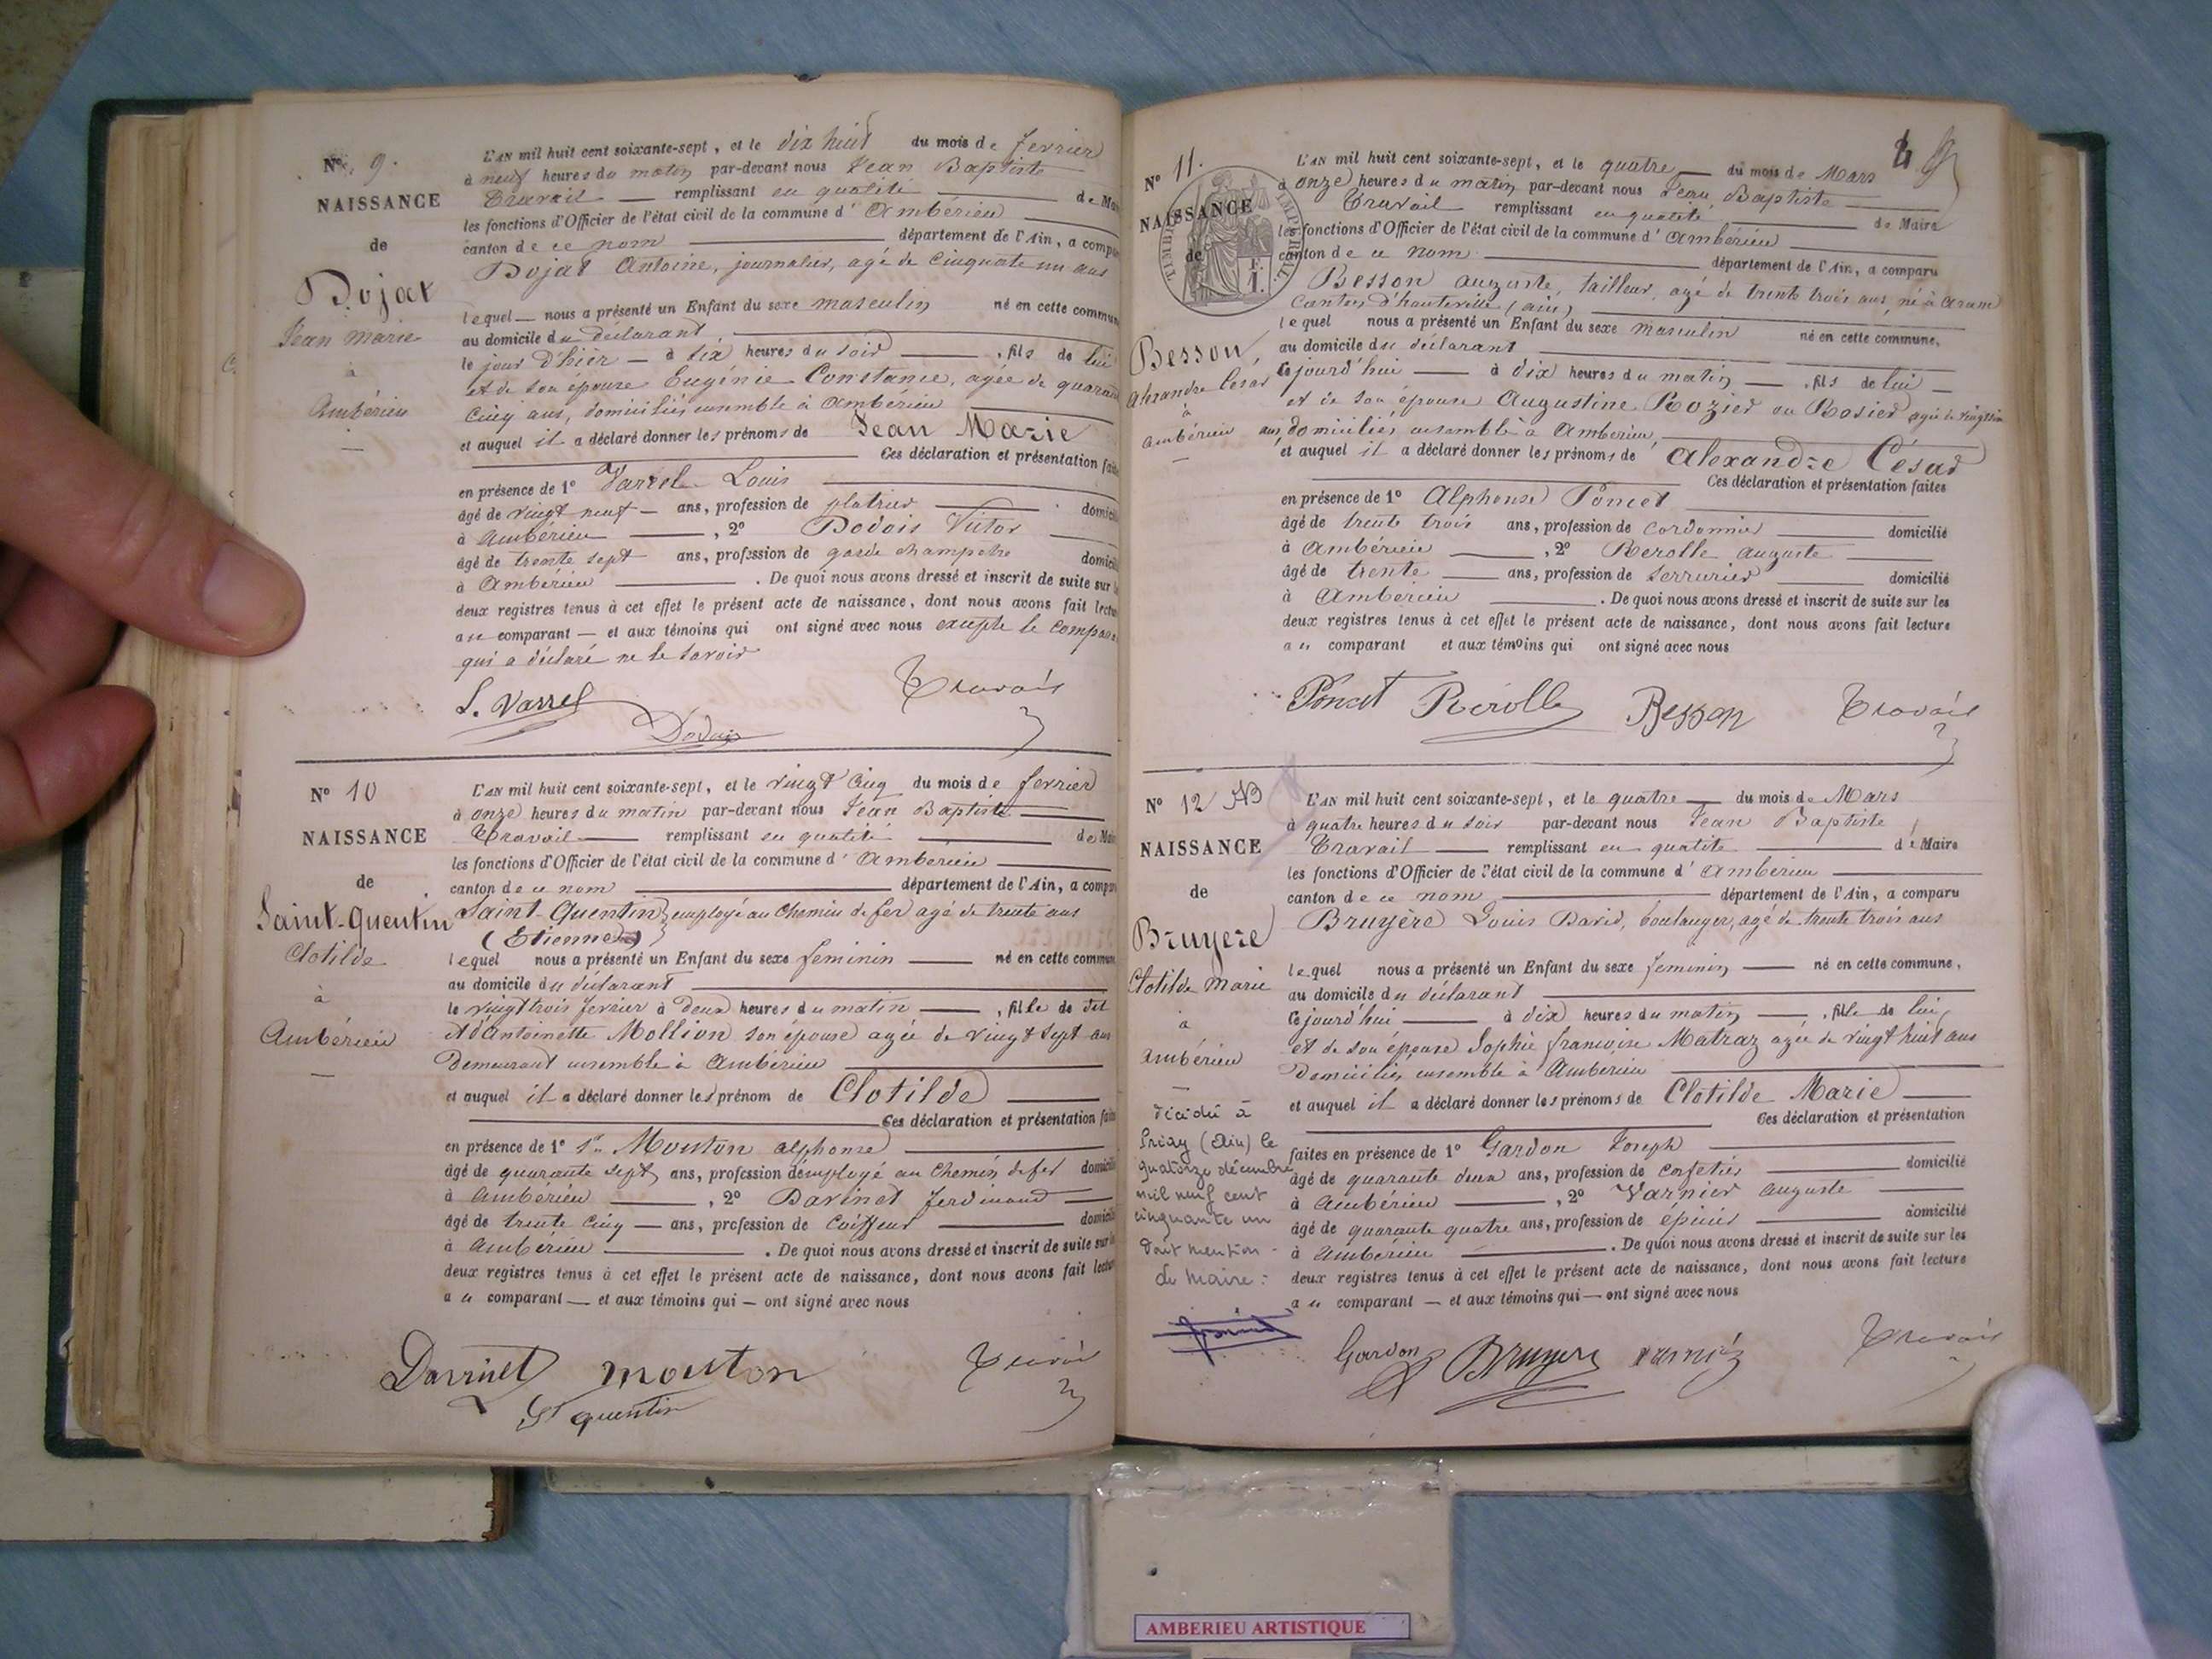 N° 9.
NAISSANCE
de
Dojat
Jean marie
à
Ambérieu
L'AN mil huit cent soixante-sept, et le dix huit du mois de fevrier
à neuf heures du matin par-devant nous Jean Baptiste
Travail remplissant en qualité de Mai
les fonctions d'Officier de l'état civil de la commune d'Ambérieu
canton de ce nom département de l'Ain, a compa
Dojat Antoine, journalier, agé de Cinquante un ans
lequel nous a présenté un Enfant du sexe masculin né en cette commun
au domicile du déclarant
le jour d'hier à six heures du soir, fils de lui
et de son épouse Eugénie Constance, agée de quarant
Cinq ans, domiciliés ensemble à Ambérieu
et auquel il a déclaré donner les prénoms de Jean Marie
Ces déclaration et présentation faite
en présence de 1° Varrel Louis
âgé de vingt neuf ans, profession de platrier domici
à Ambérieu, 2° Dodois Victor
âgé de trente sept ans, profession de garde champetre domici
à Ambérieu. De quoi nous avons dressé et inscrit de suite sur le
deux registres tenus à cet effet le présent acte de naissance, dont nous avons fait lectu
au comparant et aux témoins qui ont signé avec nous excepté le compara
qui a déclaré ne le savoir
L. Varrel Travail
Dodois
N° 10
NAISSANCE
de
Saint-Quentin
Clotilde
à
Ambérieu
L'AN mil huit cent soixante-sept, et le vingt Cinq du mois de fevrier
à onze heures du matin par-devant nous Jean Baptiste
Travail remplissant en qualité de Mai
les fonctions d'Officier de l'état civil de la commune d'Ambérieu
canton de ce nom département de l'Ain, a compa
Saint-Quentin employé au Chemin de fer agé de trente ans
(Etienne)
lequel nous a présenté un Enfant du sexe feminin né en cette commun
au domicile du déclarant
le vingt trois fevrier à Deux heures du matin, fille de dit
et d'Antoinette Mollion son épouse agée de vingt sept ans
Demeurant ensemble à Ambérieu
et auquel il a déclaré donner les prénom de Clotilde
Ces déclaration et présentation faite
en présence de 1° Mouton alphonse
âgé de quarante sept ans, profession d'employé au Chemin de fer domicili
à Ambérieu, 2° Davinet ferdinand
âgé de trente Cinq ans, profession de Coiffeur domicili
à Ambérieu. De quoi nous avons dressé et inscrit de suite sur le
deux registres tenus à cet effet le présent acte de naissance, dont nous avons fait lectu
au comparant et aux témoins qui ont signé avec nous
Davinet mouton Travail
St quentin
N° 11.
NAISSANCE
de
TIMBRE IMPERIAL
F.
1.
Besson,
Alexandre César
à
Ambérieu
4
L'AN mil huit cent soixante-sept, et le quatre du mois de Mars
à onze heures du matin par-devant nous Jean Baptiste
Travail remplissant en qualité de Maire
les fonctions d'Officier de l'état civil de la commune d'Ambérieu
canton de ce nom département de l'Ain, a comparu
Besson auguste, tailleur, agé de trente trois ans, né à Aranc
Canton d'hauteville (ain)
lequel nous a présenté un Enfant du sexe masculin né en cette commune,
au domicile du déclarant
Cejourd'hui à dix heures du matin, fils de lui
et de son épouse Augustine Rozier ou Rosier agée de vingt
ans, domiciliés ensemble à Amberieu,
et auquel il a déclaré donner les prénoms de Alexandre César
Ces déclaration et présentation faites
en présence de 1° Alphonse Poncet
âgé de trente trois ans, profession de Cordonnier domicilié
à Ambérieu, 2° Rerolle auguste
âgé de trente ans, profession de serrurier domicilié
à Amberieu. De quoi nous avons dressé et inscrit de suite sur les
deux registres tenus à cet effet le présent acte de naissance, dont nous avons fait lecture
au comparant et aux témoins qui ont signé avec nous
Poncet Rérolle Besson Travail
N° 12
NAISSANCE
de
Bruyere
Clotilde Marie
à
Ambérieu
décidée à
Priay (Ain) le
quatorze décembre
mil neuf cent
cinquante un
Dont mention
Le Maire:
L'AN mil huit cent soixante-sept, et le quatre du mois de Mars
à quatre heures du soir par-devant nous Jean Baptiste
Travail remplissant en qualité de Maire
les fonctions d'Officier de l'état civil de la commune d'Ambérieu
canton de ce nom département de l'Ain, a comparu
Bruyère Louis David, boulanger, agé de trente trois ans
lequel nous a présenté un Enfant du sexe feminin né en cette commune,
au domicile du déclarant
Cejourd'hui à dix heures du matin, fille de lui
et de son épouse Sophie françoise Matraz agée de vingt huit ans
Domiciliés ensemble à Amberieu
et auquel il a déclaré donner les prénoms de Clotilde Marie
Ces déclaration et présentation
faites en présence de 1° Gardon Joseph
âgé de quarante deux ans, profession de cafetier domicilié
à Ambérieu, 2° Varnier auguste
âgé de quarante quatre ans, profession de épicier domicilié
à Amberieu. De quoi nous avons dressé et inscrit de suite sur les
deux registres tenus à cet effet le présent acte de naissance, dont nous avons fait lecture
au comparant et aux témoins qui ont signé avec nous
Gardon Bruyere varnier Travail
AMBERIEU ARTISTIQUE